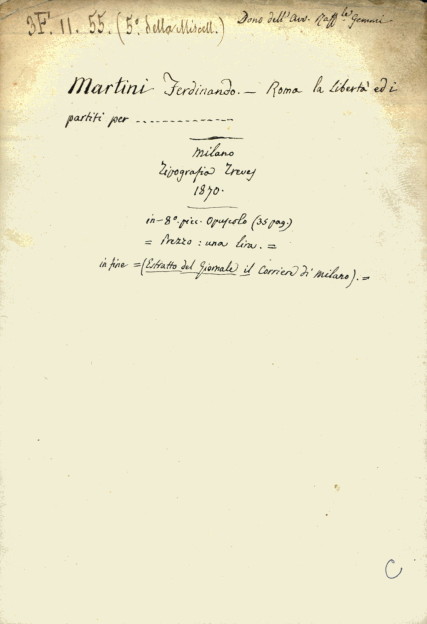 3F. 11. 55. (5° della Miscell.) Dono dell'Avv. Raff.le Gennari
Martini Ferdinando. — Roma la Libertà ed i
partiti per --------------
Milano
Tipografia Treves
1870.
in-8°. picc. Opuscolo (35 pag.)
= Prezzo: una lira. =
in fine = (Estratto del Giornale il Corriere di Milano). =
C